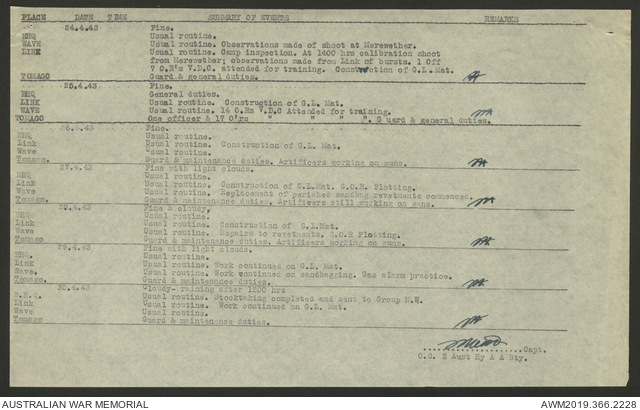 PLACE DATE TIME SUMMARY OF EVENTS REMARKS
24.4.43 Fine.
BHQ Usual routine.
WAVE Usual routine. Observations made of shoot at Merewether.
LINK Usual routine. Camp inspection. At 1400 hrs calibration shoot
from Merewether; observations made from Link of bursts. 1 Off
7 O.R's V.D.C. attended for training. Construction of G.L. Mat.
TOMAGO Guard & general duties.
25.4.43 Fine.
BHQ General duties.
LINK Usual routine. Construction of G.L. Mat.
WAVE Usual routine. 14 O.Rs V.D.C Attended for training.
TOMAGO One officer & 17 O'rs " " " ". Guard & general duties.
26.4.43 Fine.
BHQ Usual routine.
Link Usual routine. Construction of G.L. Mat.
Wave Usual routine.
Tomago. Guard & maintenance duties. Artificers working on guns.
27.4.43 Fine with light clouds.
BHQ Usual routine.
Link Usual routine. Construction of G.L.Mat. G.O.R. Plotting.
Wave Usual routine. Replacement of perished sandbag revetments commenced.
Tomago. Guard & maintenance duties. Artificers still working on guns.
28.4.43 Fine & cloudy.
BHQ Usual routine.
Link Usual routine. Construction of G.L.Mat.
Wave Usual routine. Repairs to revetments. G.O.R Plotting.
Tomago Guard & maintenance duties. Artificers working on guns.
29.4.43 Fine with light clouds.
BHQ. Usual routine.
Link Usual routine. Work continued on G.L. Mat.
Wave. Usual routine. Work continued on sandbagging. Gas alarm practice.
Tomago. Guard & maintenance duties.
30.4.43 Cloudy- raining after 1200 hrs
B.H.Q. Usual routine. Stocktaking completed and sent to Group N.W.
Link Usual routine. Work continued on G.L. Mat.
Wave Usual routine.
Tomago Guard & maintenance duties.
Capt.
O.C. 2 Aust Hy A A Bty.
AUSTRALIAN WAR MEMORIAL AWM2019.366.2228